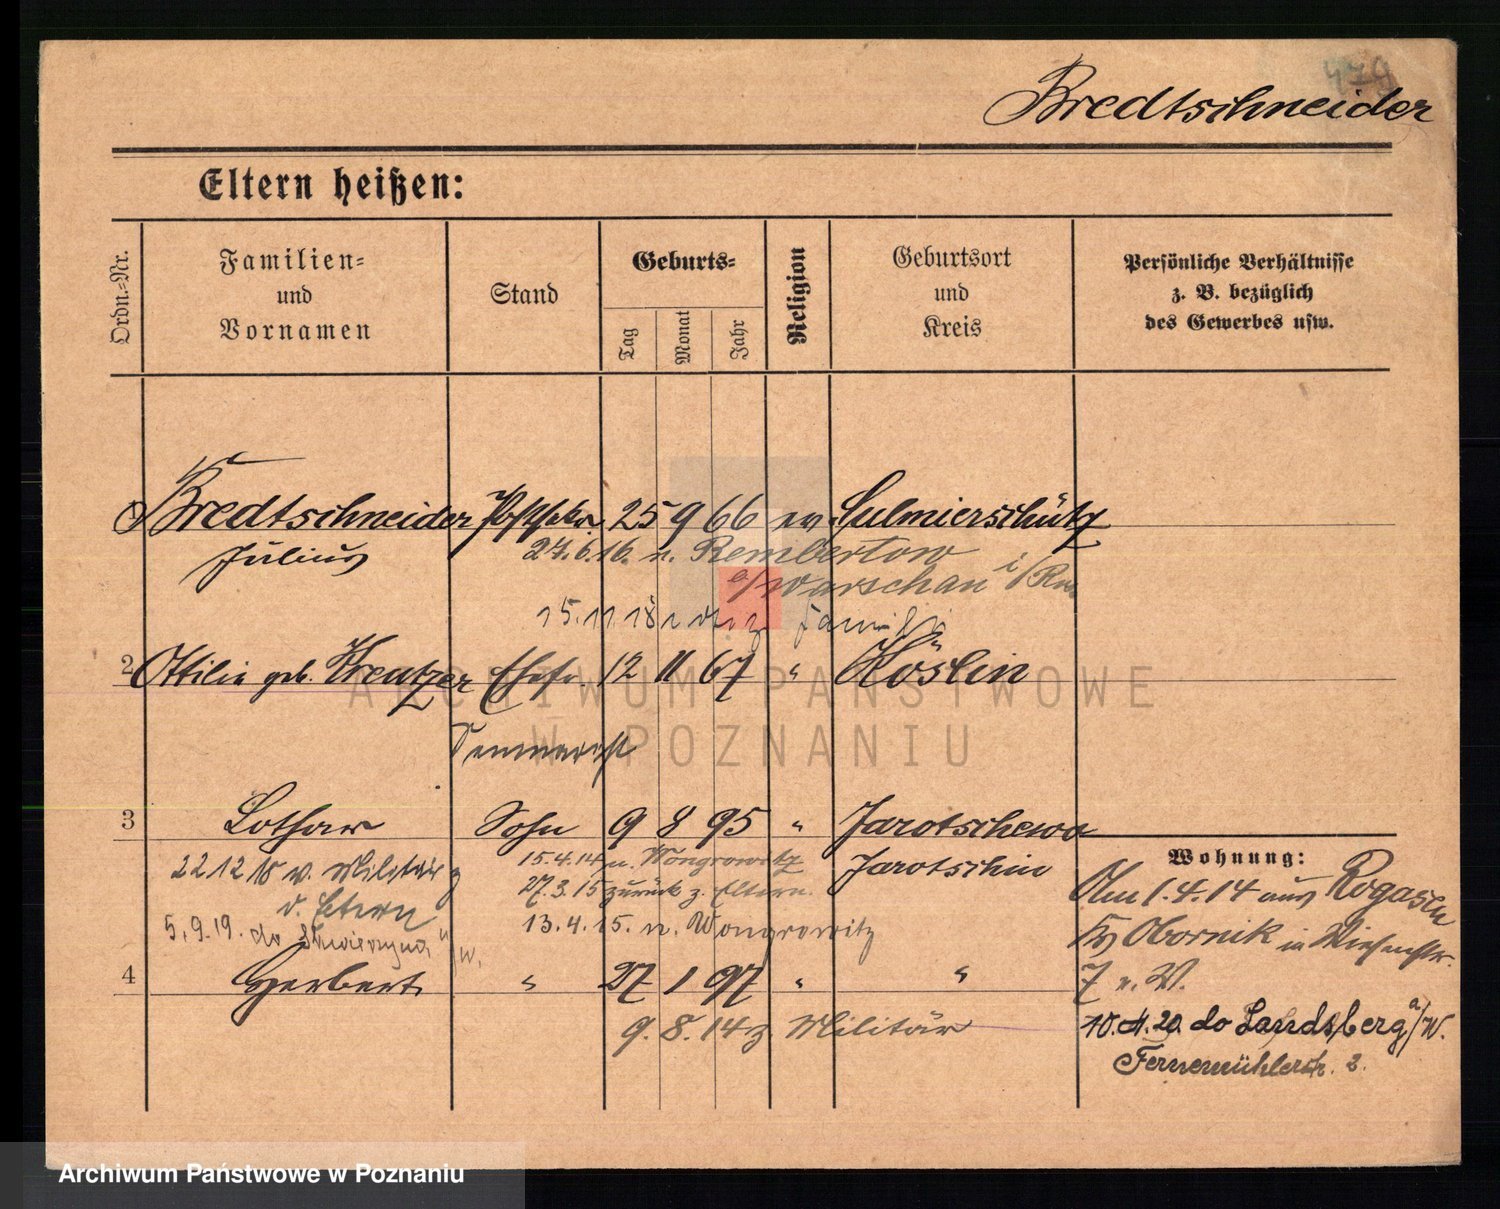 479
Bredtschneider
Eltern heißen:
Ordn.-Nr.
Familien-
und
Vornamen
Stand
Geburts-
Tag
Monat
Jahr
Religion
Geburtsort
und
Kreis
Persönliche Verhältnisse
z. B. bezüglich
des Gewerbes usw.
1 Bredtschneider 25 9 66 ev. Sulmierschütz
Julius
27.6.16. n. Rembertow
a/Warschau i/
15.11.18 Familie
2 Ottilie geb. Kreutzer Ehefr. 12 11 67 " Köslin
ARCHIWUM PAŃSTWOWE
W POZNANIU
3 Lothar Sohn 9 8 95 " Jarotschewo
Jarotschin
15.4.14 n. Wongrowitz
27.3.15 zurück z. Eltern.
13.4.15. n. Wongrowitz
22 12 18 v. Militär z
d. Eltern
5.9.19. do Skwierzyna n/W.
4 Herbert " 27 1 97 " "
9. 8. 14 z. Militär
Wohnung:
Am 1.4.14 aus Rogasen
Kr Obornik in
7 n. W.
10.4.20. do Landsberg a/W.
2.
Archiwum Państwowe w Poznaniu